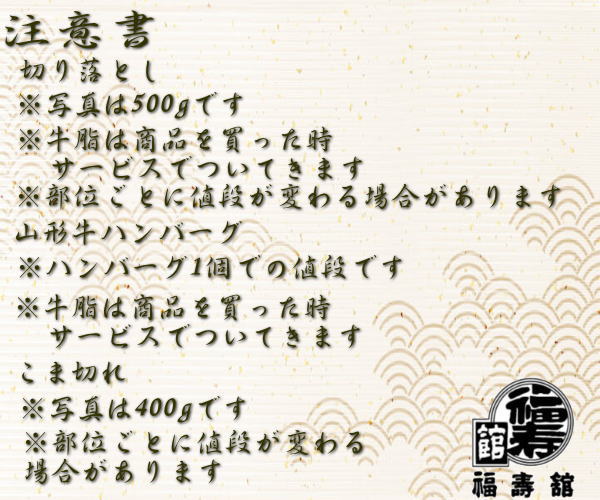 注意書
切り落とし
※写真は500gです
※牛脂は商品を買った時
サービスでついてきます
※部位ごとに値段が変わる場合があります
山形牛ハンバーグ
※ハンバーグ1個での値段です
※牛脂は商品を買った時
サービスでついてきます
こま切れ
※写真は400gです
※部位ごとに値段が変わる
場合があります
福寿
館
福壽舘